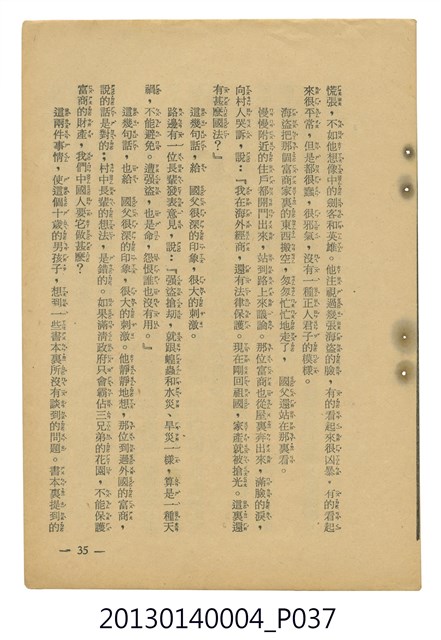 慌張，不如他想像中的劍客和英雄。他注視過幾張海盜的臉，有的看起來很凶暴，有的看起
來很平常，但是都很蠢，很邪氣，沒有一種正人君子的模樣。
海盜把那個富商家裏的東西搬空，匆匆忙忙地走了，　國父還站在那裏看。
慢慢附近的住戶都開門出來，站到路上來議論。那位富商也從屋裏奔出來，滿臉的淚，
向村人哭訴，說：『我在海外經商，還有法律保護。現在剛回祖國，家產就被搶光。這裏還
有甚麼國法？』
這幾句話，給　國父很深的印象，很大的刺激。
路邊有一位長輩發表意見，說：『强盜搶刼，就跟蝗蟲和水災、旱災一樣，算是一種天
禍，不能避免。遭强盜，也是命，怨恨誰也沒有用。』
這幾句話，也給　國父很深的印象，很大的刺激。他靜靜地想，那位到過外國的富商，
說的話是對的；村中長輩的想法，是錯的。如果滿清政府只會霸佔三兄弟的花園，不能保護
富商的財產，我們中國人要它做甚麼？
這兩件事情，使這個十歲的男孩子，想到一些書本裏所沒有談到的問題。書本裏提到的
— 35 —
20130140004_P037